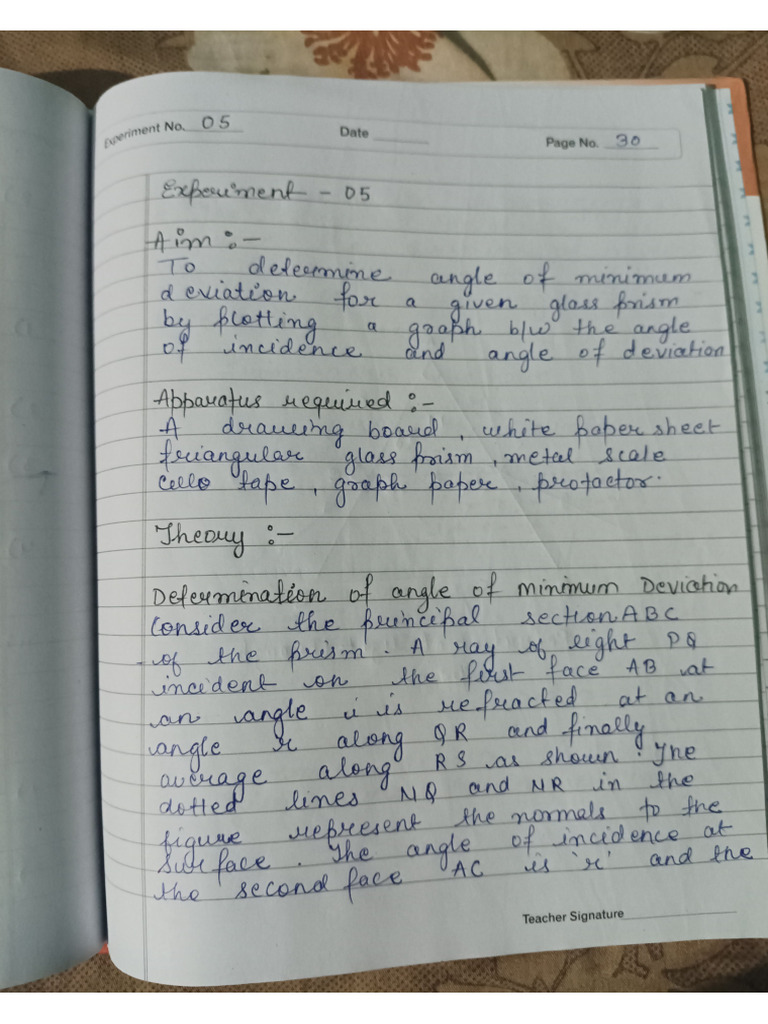 Experiment No. 05 Date Page No. 30
Experiment - 05
Aim :-
To determine angle of minimum
deviation for a given glass prism
by plotting a graph b/w the angle
of incidence and angle of deviation
Apparatus required :-
A drawing board, white paper sheet
triangular glass prism, metal scale
cello tape, graph paper, protactor.
Theory :-
Determination of angle of minimum Deviation
Consider the principal section ABC
of the prism. A ray of light PQ
incident on the first face AB at
an angle i is refracted at an
angle r along QR and finally
average along RS as shown. The
dotted lines NQ and NR in the
figure represent the normals to the
surface. The angle of incidence at
the second face AC is 'r' and the
Teacher Signature